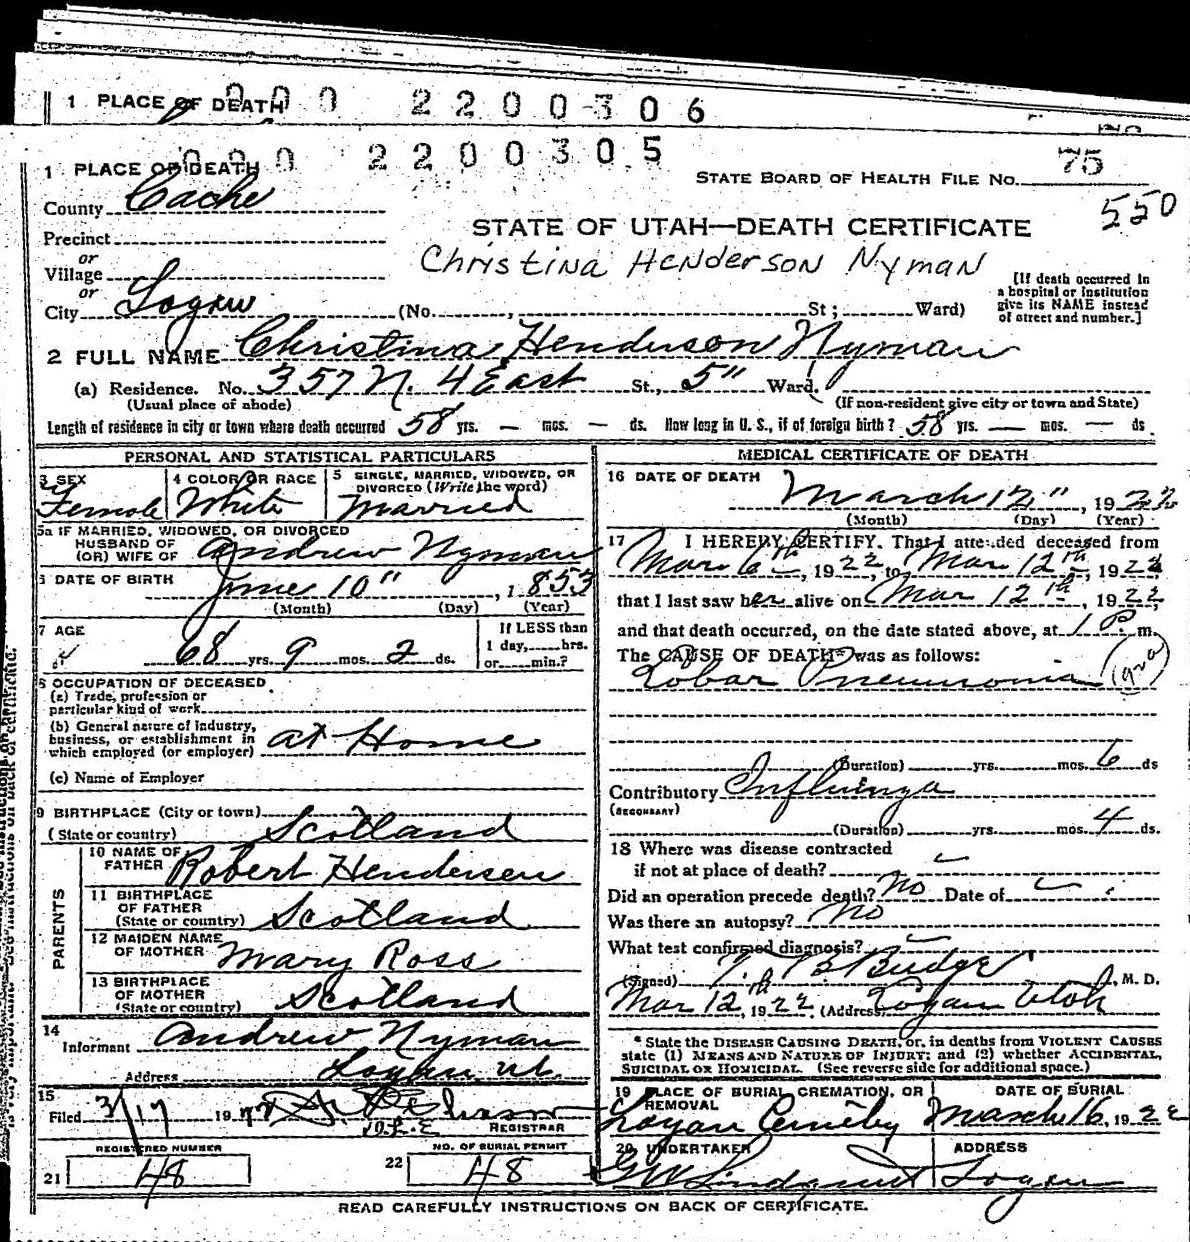 1 PLACE OF DEATH
000 2200306
000 2200305
1 PLACE OF DEATH
STATE BOARD OF HEALTH FILE NO. 75
550
County Cache
STATE OF UTAH—DEATH CERTIFICATE
Precinct
or
Christina Henderson Nyman
Village
or
[If death occurred in a hospital or institution give its NAME instead of street and number.]
City Logan (No. , St; Ward)
2 FULL NAME Christina Henderson Nyman
(a) Residence. No. 357 N. 4 East St., 5" Ward.
(Usual place of abode) (If non-resident give city or town and State)
Length of residence in city or town where death occurred 58 yrs. — mos. — ds. How long in U. S., if of foreign birth? 58 yrs. — mos. — ds
PERSONAL AND STATISTICAL PARTICULARS
3 SEX Female
4 COLOR OR RACE White
5 SINGLE, MARRIED, WIDOWED, OR DIVORCED (Write the word) Married
5a IF MARRIED, WIDOWED, OR DIVORCED
HUSBAND OF
(OR) WIFE OF Andrew Nyman
6 DATE OF BIRTH June 10", 1853
(Month) (Day) (Year)
7 AGE 68 yrs. 9 mos. 2 ds.
If LESS than 1 day, hrs. or min.?
8 OCCUPATION OF DECEASED
(a) Trade, profession or particular kind of work
(b) General nature of industry, business, or establishment in which employed (or employer) at Home
(c) Name of Employer
9 BIRTHPLACE (City or town)
(State or country) Scotland
PARENTS
10 NAME OF FATHER Robert Henderson
11 BIRTHPLACE OF FATHER (State or country) Scotland
12 MAIDEN NAME OF MOTHER Mary Ross
13 BIRTHPLACE OF MOTHER (State or country) Scotland
14 Informant Andrew Nyman
Address Logan Ut.
15 Filed 3/17 1922
REGISTRAR
REGISTERED NUMBER
21 48
NO. OF BURIAL PERMIT
22 48
MEDICAL CERTIFICATE OF DEATH
16 DATE OF DEATH March 12", 1922
(Month) (Day) (Year)
17 I HEREBY CERTIFY. That I attended deceased from
Mar 6th, 1922, to Mar 12th, 1922
that I last saw her alive on Mar 12th, 1922,
and that death occurred, on the date stated above, at 1 P. m.
The CAUSE OF DEATH* was as follows:
Lobar Pneumonia
(Duration) yrs. mos. 6 ds
Contributory Influenza
(SECONDARY)
(Duration) yrs. mos. 4 ds.
18 Where was disease contracted
if not at place of death?
Did an operation precede death? No Date of
Was there an autopsy? No
What test confirmed diagnosis?
(Signed) T. B. Budge, M. D.
Mar 12th, 1922, (Address) Logan Utah
* State the DISEASE CAUSING DEATH, or, in deaths from VIOLENT CAUSES
state (1) MEANS AND NATURE OF INJURY; and (2) whether ACCIDENTAL,
SUICIDAL OR HOMICIDAL. (See reverse side for additional space.)
19 PLACE OF BURIAL, CREMATION, OR REMOVAL Logan Cemetery
DATE OF BURIAL March 16, 1922
20 UNDERTAKER G W Lindquist
ADDRESS Logan
READ CAREFULLY INSTRUCTIONS ON BACK OF CERTIFICATE.